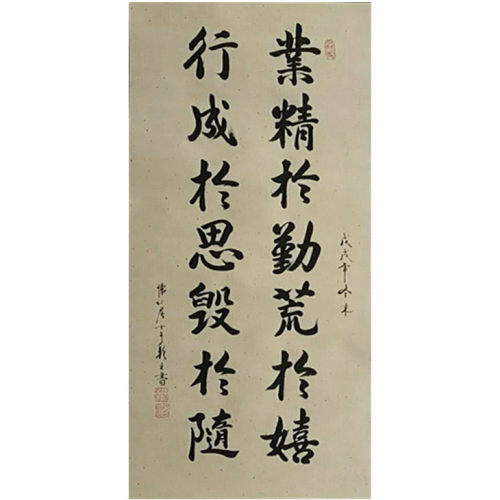 業精於勤荒於嬉
行成於思毀於隨
戊戌年冬月